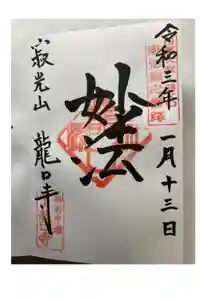 令和三年一月十三日
妙法
寂光山 龍口寺